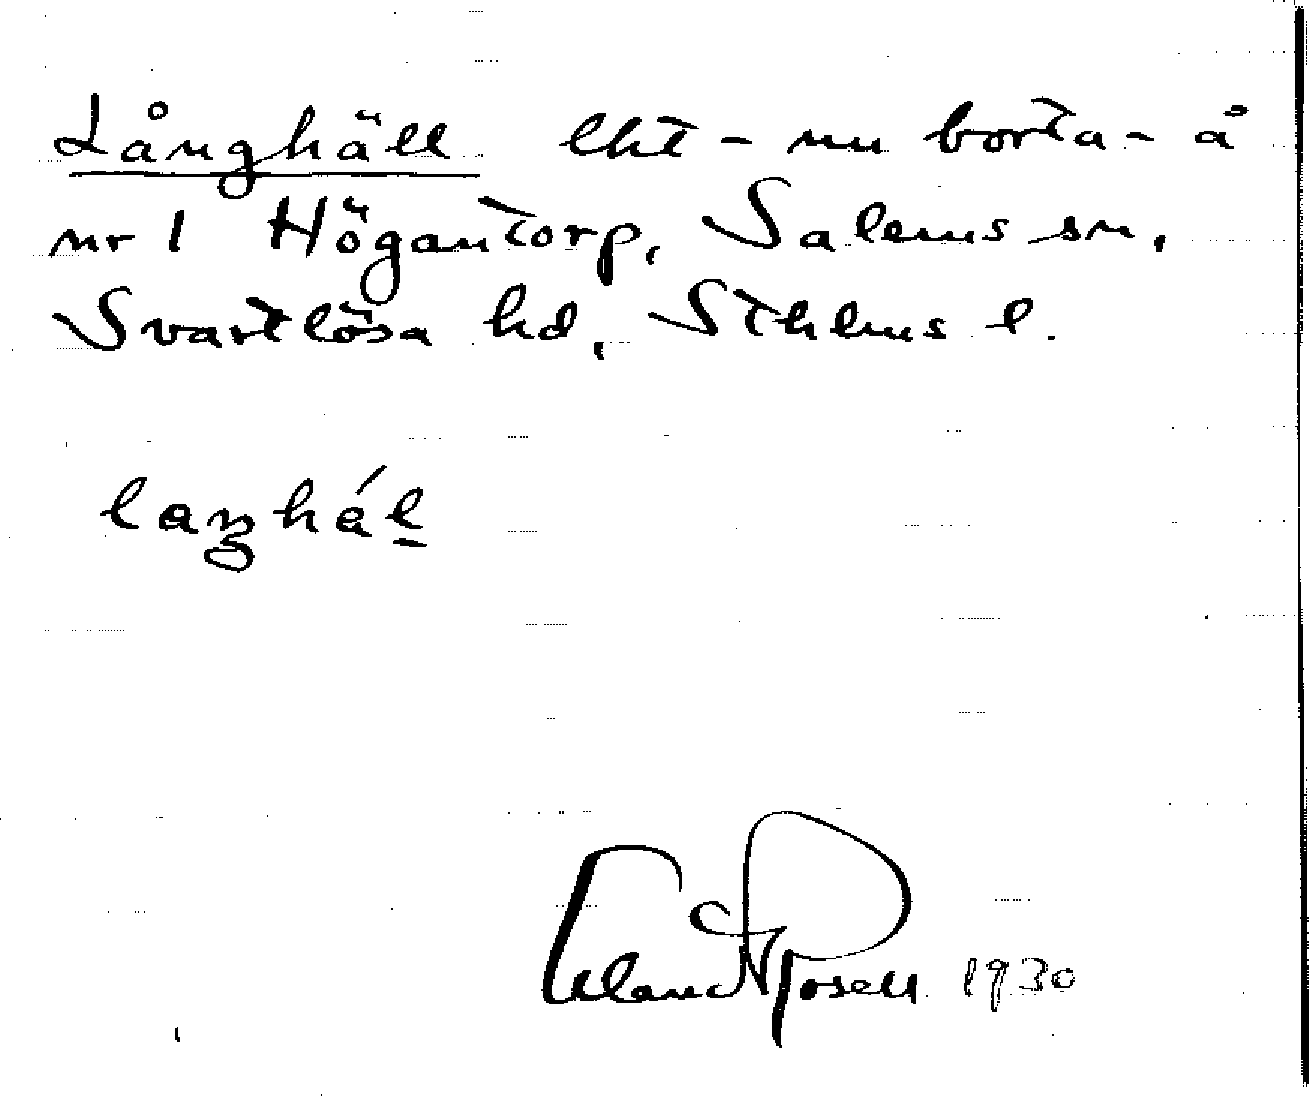 Långhäll lht - nu borta - å
nr 1 Högantorp, Salems sn,
Svartlösa hd, Sthlms l.
laŋhál
Erland Rosell 1930